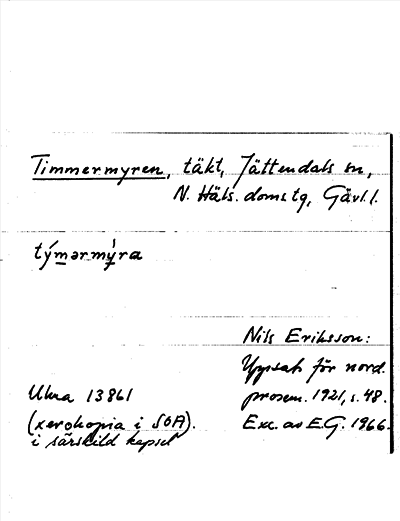 Timmermyren, täkt, Jättendals sn,
N. Häls. doms.tg, Gävl. l.
tý̱mərmý̱ra
Nils Eriksson:
Uppsats för nord.
Ulma 13861
prosem. 1921, s. 48.
(xerokopia i SOA).
Exc. av E.G. 1966.
i särskild kapsel